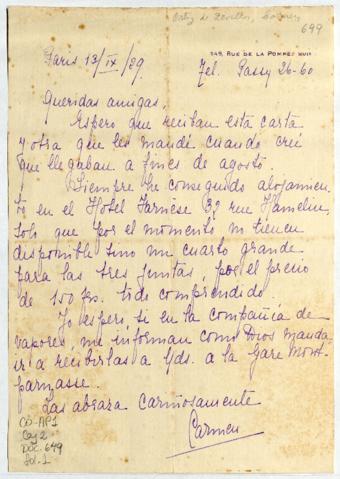 Ortiz de Zevallos, Carmen
649
Paris 13/IX/29
149, RUE DE LA POMPE, XVIe
Tel. Passy 26-60
Queridas amigas,
Espero que reciban esta carta
y otra que les mandé cuando creí
que llegaban a fines de agosto.
Siempre he conseguido alojamien
to en el Hotel Farnèse 32 rue Hamelin,
solo que por el momento no tienen
disponible sino un cuarto grande
para las tres juntas, por el precio
de 150 frs. todo comprendido
Yo espero si en la compañia de
vapores, me informan como Dios manda,
ir a recibirlas a Uds. a la Gare Mont-
parnasse.
Las abraza cariñosamente
Carmen
CO-AP1
Caj 2
DOC. 649
fol. 1